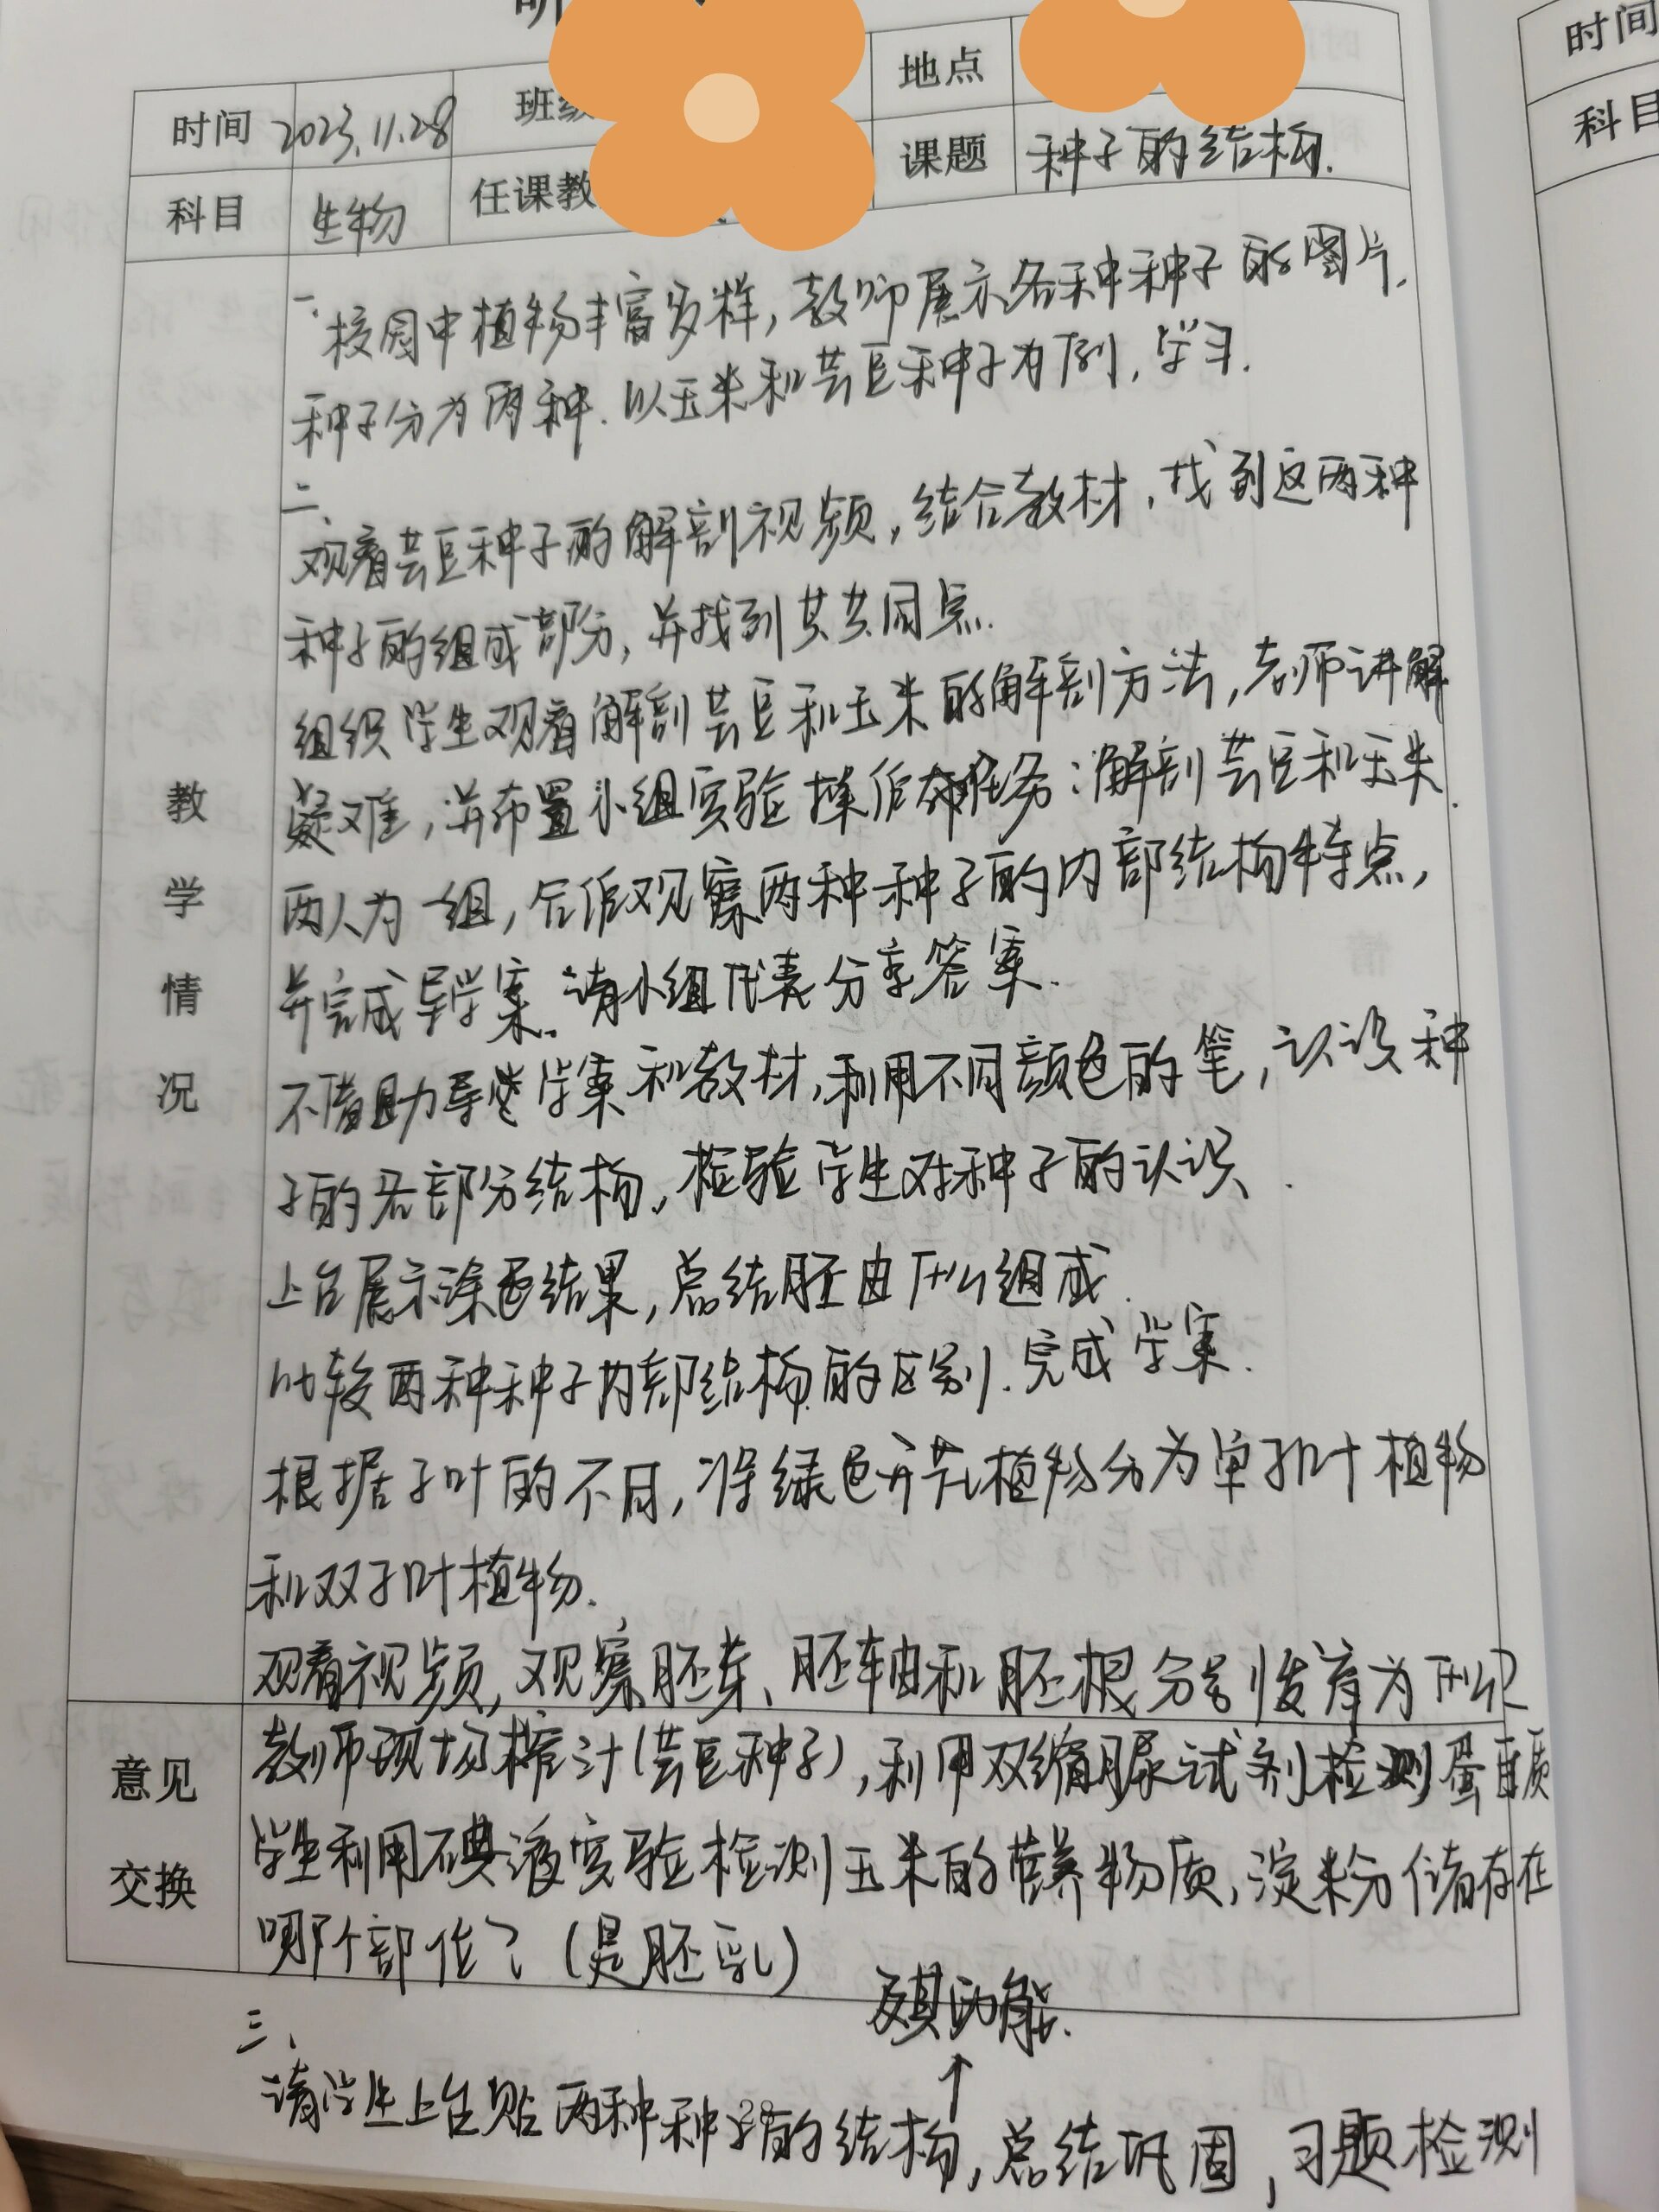 时间 2023.11.28 班级 地点
科目 生物 任课教 课题 种子的结构.
教学情况
一、校园中植物丰富多样,教师展示各种种子的图片.
种子分为两种.以玉米和芸豆种子为例,学习.
二、
观看芸豆种子的解剖视频,结合教材,找到这两种
种子的组成部分,并找到其共同点.
组织学生观看解剖芸豆和玉米的解剖方法,老师讲解
疑难,并布置小组实验操作任务:解剖芸豆和玉米.
两人为一组,合作观察两种种子的内部结构特点,
并完成导学案.请小组代表分享答案.
不借助导学案和教材,利用不同颜色的笔,认识种
子的各部分结构,检验学生对种子的认识.
上台展示涂色结果,总结胚由什么组成.
比较两种种子内部结构的区别.完成学案.
根据子叶的不同,将绿色开花植物分为单子叶植物
和双子叶植物.
观看视频,观察胚芽、胚轴和胚根分别发育为什么?
意见交换
教师现场榨汁(芸豆种子),利用双缩脲试剂检测蛋白质
学生利用碘液实验检测玉米的营养物质,淀粉储存在
哪个部位?(是胚乳)
及其功能.
↑
三、
请学生上台贴两种种子的结构,总结巩固,习题检测
时间
科目